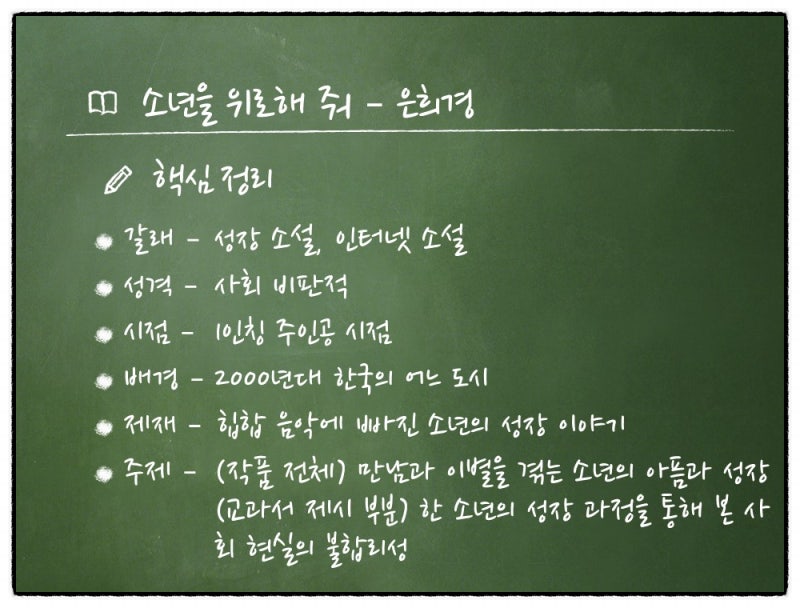 소년을 위로해 줘 - 은희경
핵심 정리
갈래 - 성장 소설, 인터넷 소설
성격 - 사회 비판적
시점 - 1인칭 주인공 시점
배경 - 2000년대 한국의 어느 도시
제재 - 힙합 음악에 빠진 소년의 성장 이야기
주제 - (작품 전체) 만남과 이별을 겪는 소년의 아픔과 성장
(교과서 제시 부분) 한 소년의 성장 과정을 통해 본 사
회 현실의 불합리성